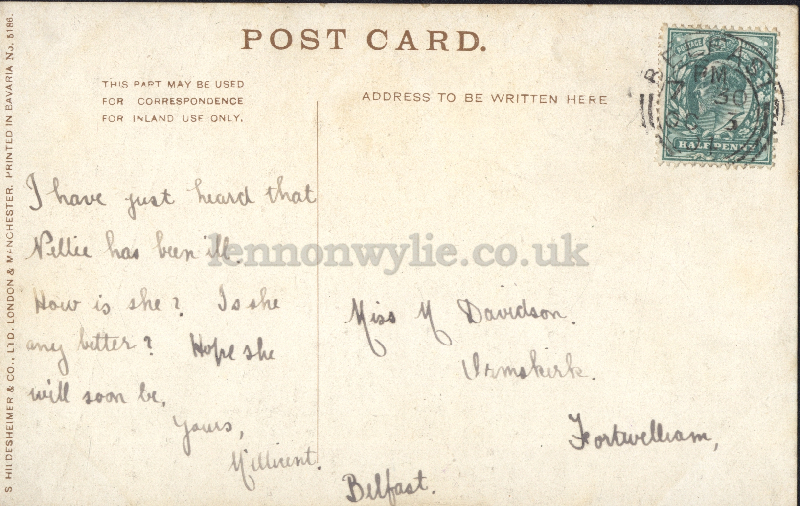 POST CARD.
THIS PART MAY BE USED
FOR CORRESPONDENCE
FOR INLAND USE ONLY.
ADDRESS TO BE WRITTEN HERE
I have just heard that
Nellie has been ill.
How is she? Is she
any better? Hope she
will soon be.
Yours,
Millicent.
Miss M Davidson.
Ormskirk.
Fortwilliam,
Belfast.
BELFAST
PM
30
3
POSTAGE
HALFPENNY
S. HILDESHEIMER & CO., LTD. LONDON & MANCHESTER. PRINTED IN BAVARIA No. 5186.
lennonwylie.co.uk